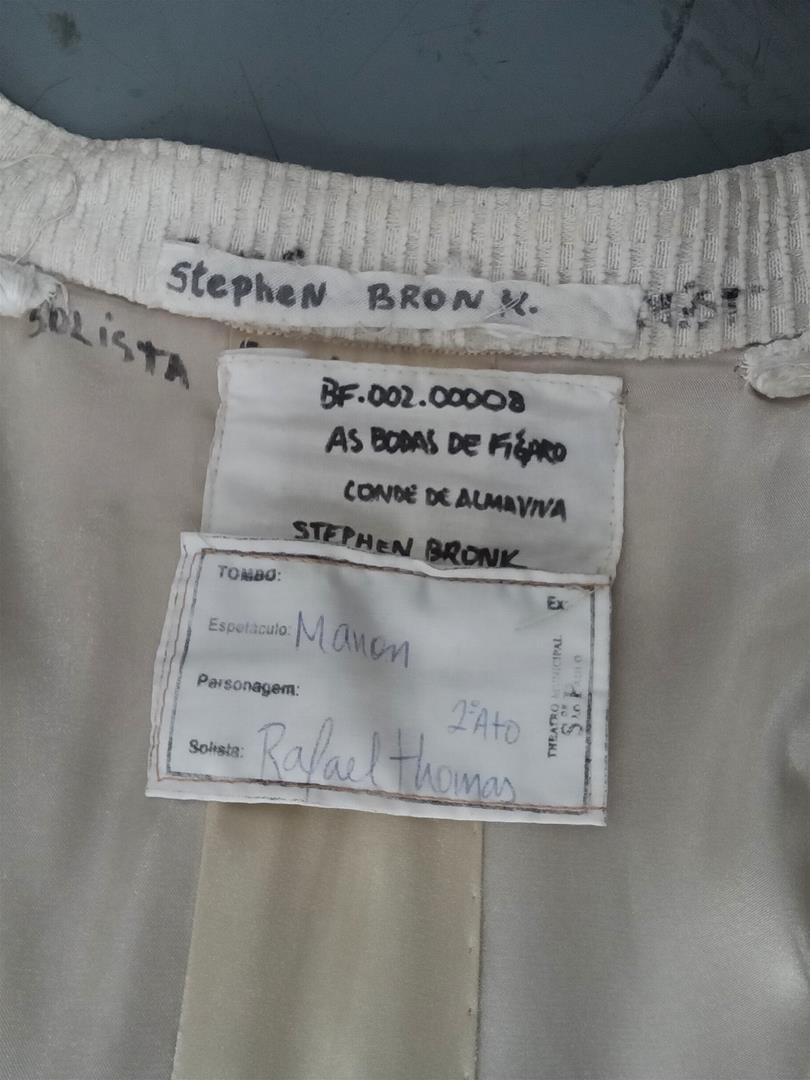 Stephen BRONK.
SOLISTA
BF.002.00008
AS BODAS DE FÍGARO
CONDE DE ALMAVIVA
STEPHEN BRONK
TOMBO:
Ex:
Espetáculo: Manon
Personagem:
2º Ato
Solista: Rafael Thomas
THEATRO MUNICIPAL
SÃO PAULO